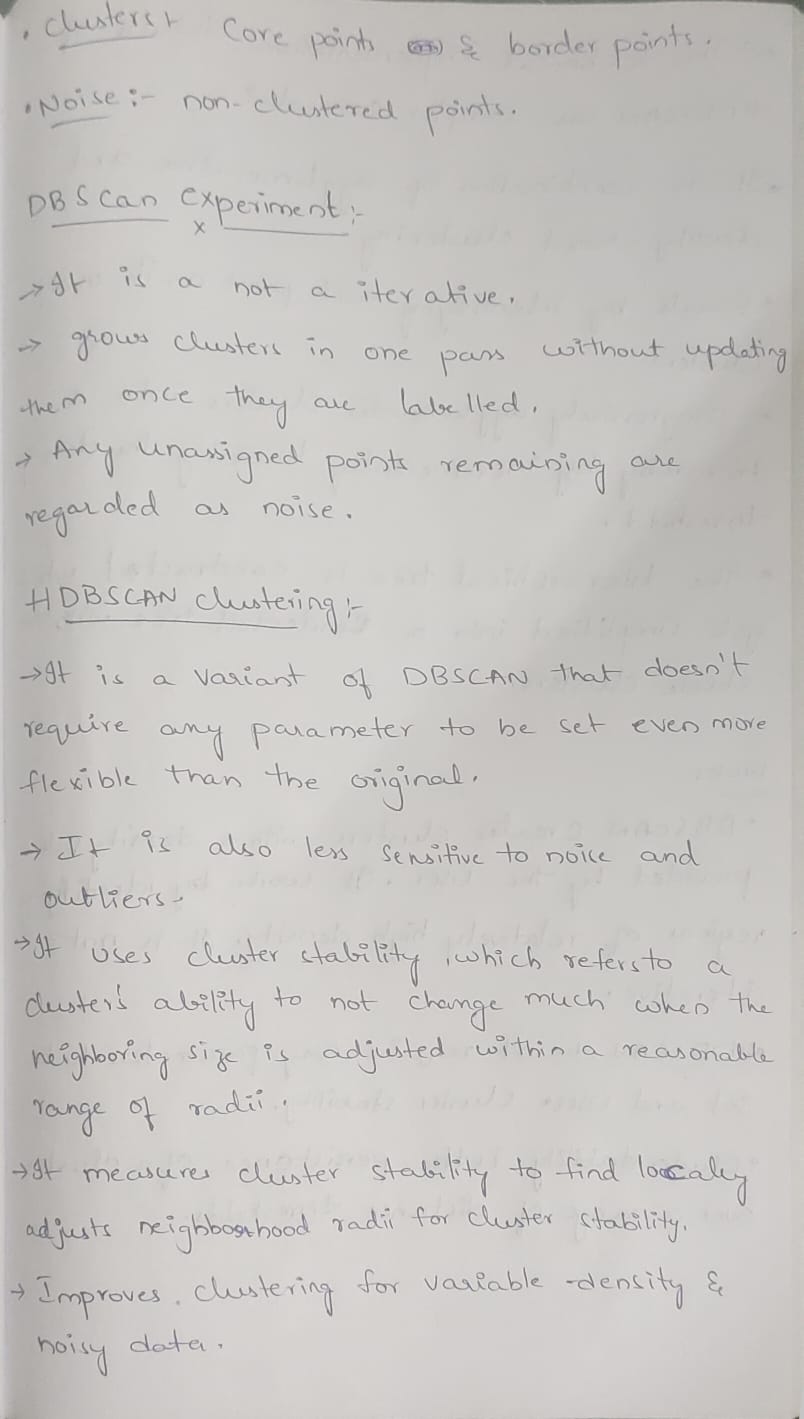 • Clusters:- Core points & border points.
• Noise :- non-clustered points.
DBScan experiment :-
x
→ It is a not a iterative.
→ grows clusters in one pass without updating
them once they are labelled.
→ Any unassigned points remaining are
regarded as noise.
HDBSCAN clustering :-
→ It is a variant of DBSCAN that doesn't
require any parameter to be set even more
flexible than the original.
→ It is also less sensitive to noise and
outliers.
→ It uses cluster stability, which refers to a
cluster's ability to not change much when the
neighboring size is adjusted within a reasonable
range of radii.
→ It measures cluster stability to find localy
adjusts neighboorhood radii for cluster stability.
→ Improves clustering for variable-density &
noisy data.